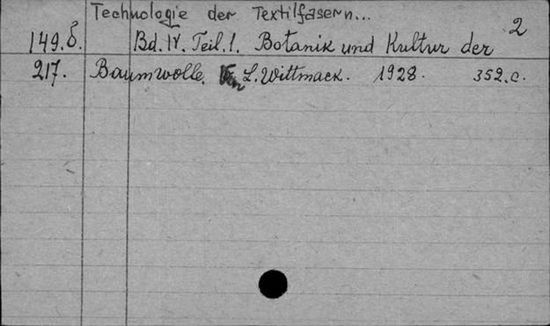 Technologie der Textilfasern...
2
149.б. Bd. IV. Teil. 1. Botanik und Kultur der
217. Baumwolle. L. Wittmack. 1928. 352.c.